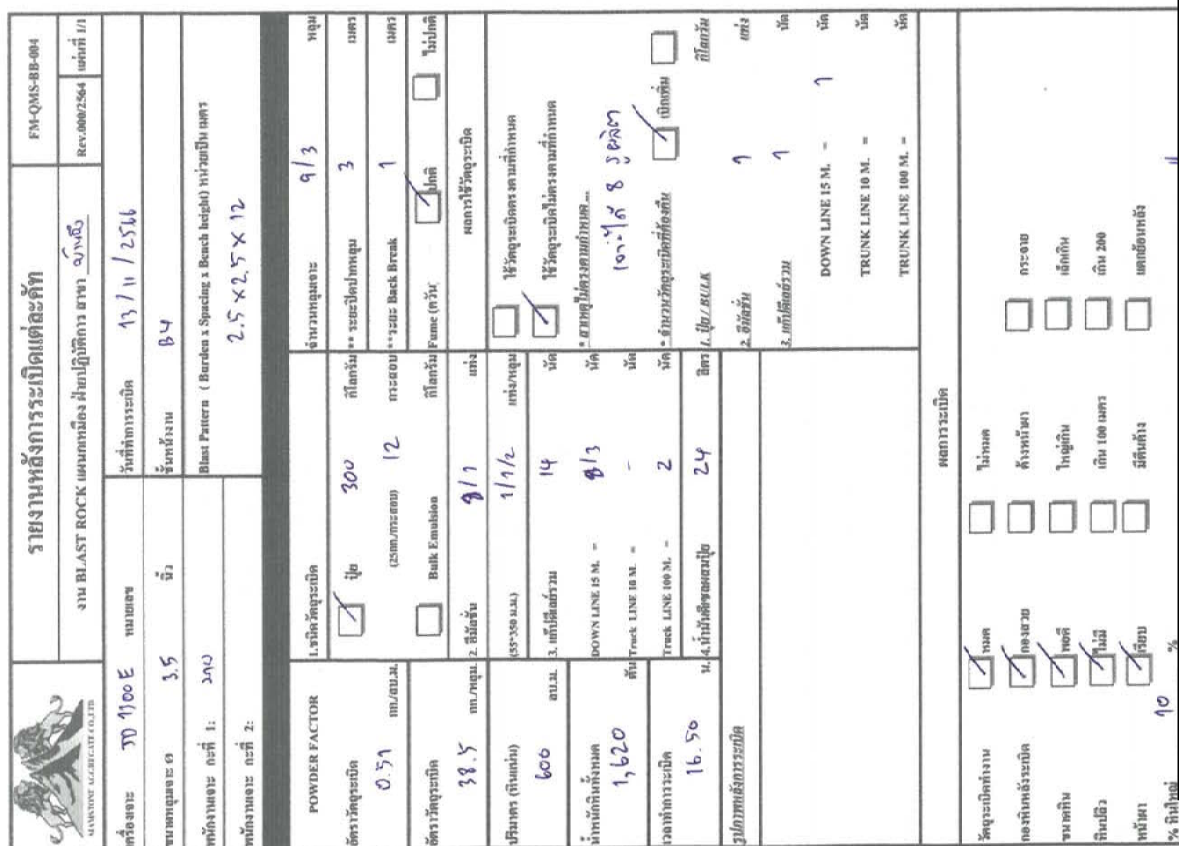 MAINSTONE AGGREGATE CO.,LTD
รายงานหลังการระเบิดแต่ละคัท
FM-QMS-BB-004
งาน BLAST ROCK แผนกเหมือง ฝ่ายปฏิบัติการ สาขา
Rev.000/2564
แผ่นที่ 1/1
เครื่องเจาะ JD 1100 E หมายเลข
วันที่ทำการระเบิด 13/11/2566
ขนาดหลุมเจาะ 3.5 นิ้ว
ชั้นหน้างาน B4
พนักงานเจาะ กะที่ 1:
Blast Pattern ( Burden x Spacing x Bench height) หน่วยเป็น เมตร
พนักงานเจาะ กะที่ 2:
2.5 x 2.5 x 12
POWDER FACTOR
อัตราวัตถุระเบิด
0.51 กก./ลบ.ม.
อัตราวัตถุระเบิด
38.5 กก./หลุม
ปริมาตร (หินแน่น)
600 ลบ.ม.
น้ำหนักหินทั้งหมด
1,620 ตัน
เวลาทำการระเบิด
16.50 น.
1.ชนิดวัตถุระเบิด
ปุ๋ย 300 กิโลกรัม
(25กก./กระสอบ) 12 กระสอบ
Bulk Emulsion กิโลกรัม
2. อีมัลชั่น 8/1 แท่ง
(55*350 ม.ม.) 1/1/2 แท่ง/หลุม
3. แก๊ปดีเลย์รวม 14 นัด
DOWN LINE 15 M. = 8/3 นัด
Truck LINE 10 M. = - นัด
Truck LINE 100 M. = 2 นัด
4.น้ำมันดีเซลผสมปุ๋ย 24 ลิตร
จำนวนหลุมเจาะ 9/3 หลุม
** ระยะปิดปากหลุม 3 เมตร
**ระยะ Back Break 1 เมตร
Fume (ควัน) ปกติ ไม่ปกติ
ผลการใช้วัตถุระเบิด
ใช้วัตถุระเบิดตรงตามที่กำหนด
ใช้วัตถุระเบิดไม่ตรงตามที่กำหนด
* สาเหตุไม่ตรงตามกำหนด...
เจาะได้ 8 รู
* จำนวนวัตถุระเบิดที่ต้องคืน เบิกเพิ่ม
1. ปุ๋ย / BULK กิโลกรัม
2. อีมัลชั่น 1 แท่ง
3. แก๊ปดีเลย์รวม 1 นัด
DOWN LINE 15 M. = 1 นัด
TRUNK LINE 10 M. = นัด
TRUNK LINE 100 M. = นัด
รูปภาพหลังการระเบิด
ผลการระเบิด
วัตถุระเบิดทำงาน หมด ไม่หมด
กองหินหลังระเบิด กองสวย ค้างหน้าผา กระจาย
ขนาดหิน พอดี ใหญ่เกิน เล็กเกิน
หินปลิว ไม่มี เกิน 100 เมตร เกิน 200
หน้าผา เรียบ มีหินค้าง แตกย้อนหลัง
% หินใหญ่ 10 %